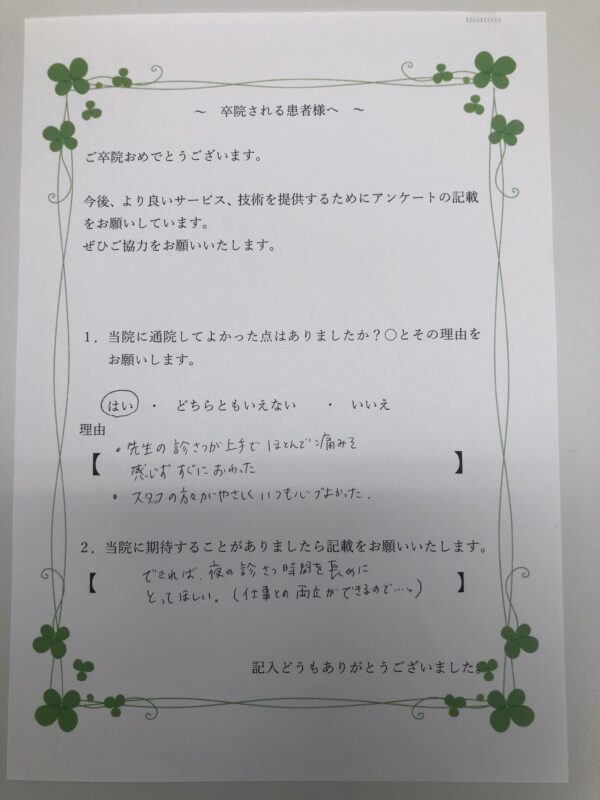 ～　卒院される患者様へ　～
ご卒院おめでとうございます。
今後、より良いサービス、技術を提供するためにアンケートの記載
をお願いしています。
ぜひご協力をお願いいたします。
1．当院に通院してよかった点はありましたか？〇とその理由を
お願いします。
はい　・　どちらともいえない　・　いいえ
理由
・先生の診さつが上手でほとんど痛みを
【　感じずすぐにおわった　】
・スタッフの方々がやさしくいつも心づよかった．
2．当院に期待することがありましたら記載をお願いいたします。
【　できれば、夜の診さつ時間を長めに　】
とってほしい。（仕事との両立ができるので…。）
記入どうもありがとうございました。